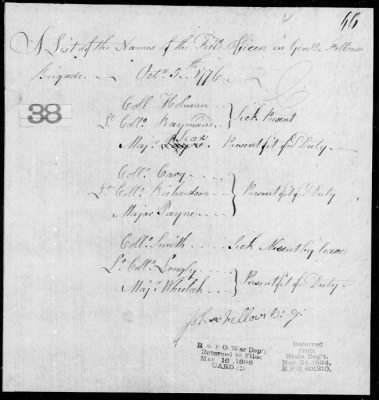 66
A List of the Names of the Field Officers in Genl. Fellows
Brigade Octr. 5th 1776
38
Coll. Holman
Lt. Collo. Raymond } Sick Present
Majr. Sear Present fit for Duty
Collo. Cary
Lt. Collo. Richardson } Present fit for Duty
Major Payne
Collo. Smith Sick Absent by leave
Lt. Collo. Longly
Majr. Whelah } Present fit for Duty
John Fellows B. G.
R & P O. War Dep't
Returned to Files
May 16, 1898
CARDED
Received
from
State Dep't.
Nov. 24, 1894.
R.P.O. 401310.